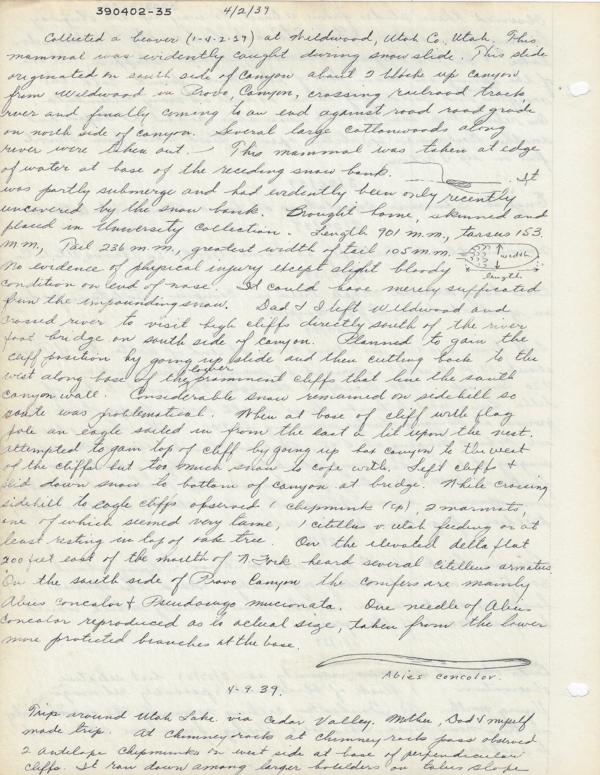 390402-35 4/2/39
Collected a beaver (1-4-2-39) at Wildwood, Utah Co., Utah. This
mammal was evidently caught during snow slide. This slide
originated on south side of canyon about 2 blocks up canyon
from Wildwood in Provo, Canyon, crossing railroad track
river and finally coming to an end against road road grade
on north side of canyon. Several large cottonwoods along
river were taken out. — This mammal was taken at edge
of water at base of the receding snow bank. It
was partly submerge and had evidently been only recently
uncovered by the snow bank. Brought home, skinned and
placed in University collection. Length 901 m.m., tarsus 153
m.m., Tail 236 m.m., greatest width of tail 105 m.m. width
No evidence of physical injury except slight bloody length
condition on end of nose. It could have merely suffocated
from the impounding snow. Dad & I left Wildwood and
crossed river to visit high cliffs directly south of the river
foot bridge on south side of canyon. Planned to gain the
cliff position by going up slide and then cutting back to the
west along base of the lower prominent cliffs that line the south
canyon wall. Considerable snow remained on sidehill so
route was problematical. When at base of cliff with flag
pole an eagle sailed in from the east & lit upon the nest.
Attempted to gain top of cliff by going up box canyon to the west
of the cliffs but too much snow to cope with. Left cliff &
slid down snow to bottom of canyon at bridge. While crossing
sidehill to eagle cliffs observed 1 chipmunk (sp), 2 marmots,
one of which seemed very tame, 1 citellus v. utah feeding or at
least resting in top of oak tree. On the elevated delta flat
200 feet east of the mouth of N. Fork heard several citellus armatus.
On the south side of Provo Canyon the conifers are mainly
Abies concolor & Pseudosuga mucronata. One needle of Abies
concolor reproduced as to actual size, taken from the lower
more protected branches at the base.
Abies concolor.
4-9-39.
Trip around Utah Lake via Cedar Valley. Mother, Dad & myself
made trip. At chimney rocks at chimney rock pass observed
2 antelope chipmunks on west side at base of perpendicular
cliffs. It ran down among larger boulders on talus slope